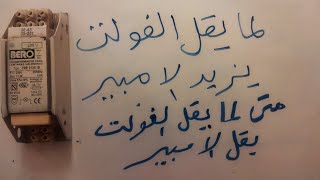 BERO
لما يقل الفولت
يزيد الامبير
متى لما يقل الفولت
يقل الامبير